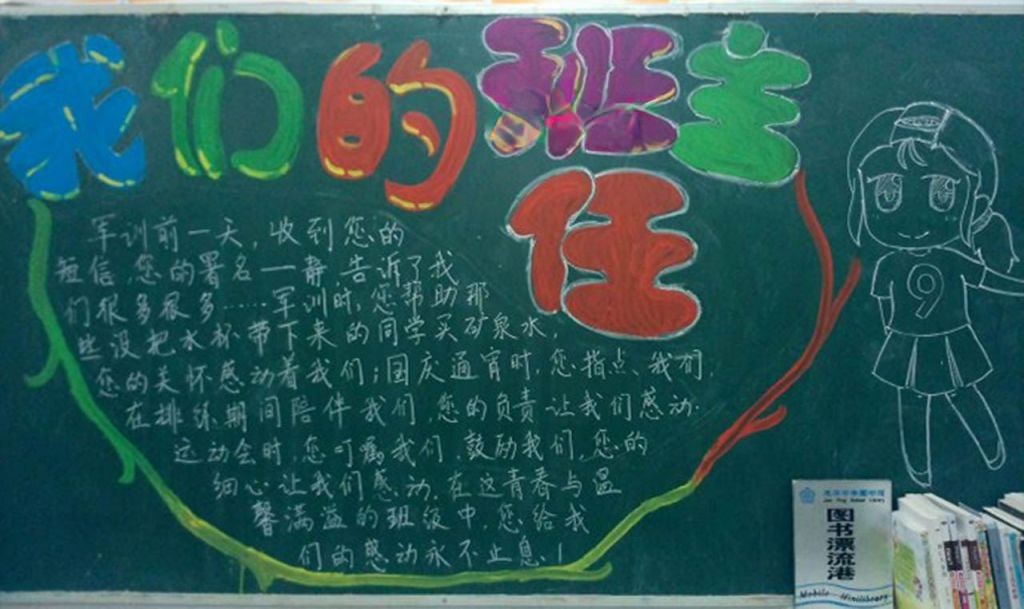 我们的班主
任
军训前一天,收到您的
短信,您的署名——静,告诉了我
们很多很多……军训时,您帮助那
些没把水杯带下来的同学买矿泉水,
您的关怀感动着我们;国庆通宵时,您指点我们,
在排练期间陪伴我们,您的负责让我们感动.
运动会时,您叮嘱我们,鼓励我们,您的
细心让我们感动,在这青春与温
馨满溢的班级中,您给我
们的感动永不止息、!
9
图书漂流港
Mobile Minilibrary